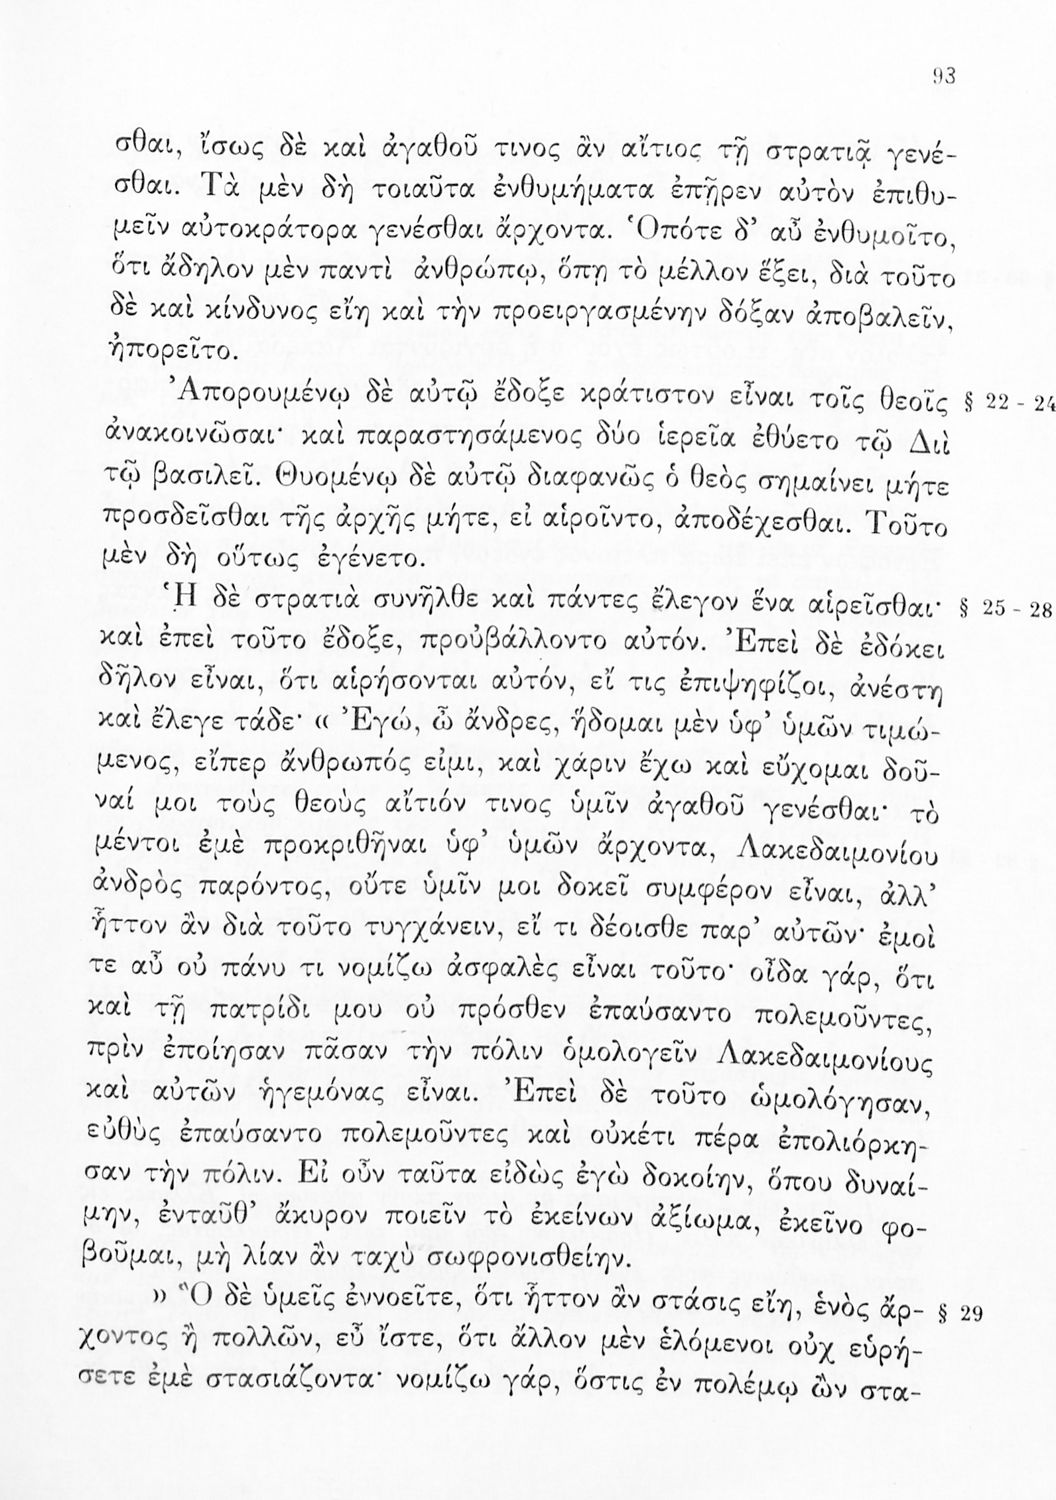 93
σθαι, ἴσως δὲ καὶ ἀγαθοῦ τινος ἂν αἴτιος τῇ στρατιᾷ γενέ-
σθαι. Τὰ μὲν δὴ τοιαῦτα ἐνθυμήματα ἐπῇρεν αὐτὸν ἐπιθυ-
μεῖν αὐτοκράτορα γενέσθαι ἄρχοντα. Ὁπότε δ’ αὖ ἐνθυμοῖτο,
ὅτι ἄδηλον μὲν παντὶ ἀνθρώπῳ, ὅπῃ τὸ μέλλον ἕξει, διὰ τοῦτο
δὲ καὶ κίνδυνος εἴη καὶ τὴν προειργασμένην δόξαν ἀποβαλεῖν,
ἠπορεῖτο.
Ἀπορουμένῳ δὲ αὐτῷ ἔδοξε κράτιστον εἶναι τοῖς θεοῖς § 22 - 24
ἀνακοινῶσαι· καὶ παραστησάμενος δύο ἱερεῖα ἐθύετο τῷ Διὶ
τῷ βασιλεῖ. Θυομένῳ δὲ αὐτῷ διαφανῶς ὁ θεὸς σημαίνει μήτε
προσδεῖσθαι τῆς ἀρχῆς μήτε, εἰ αἱροῖντο, ἀποδέχεσθαι. Τοῦτο
μὲν δὴ οὕτως ἐγένετο.
Ἡ δὲ στρατιὰ συνῆλθε καὶ πάντες ἔλεγον ἕνα αἱρεῖσθαι· § 25 - 28
καὶ ἐπεὶ τοῦτο ἔδοξε, προὐβάλλοντο αὐτόν. Ἐπεὶ δὲ ἐδόκει
δῆλον εἶναι, ὅτι αἱρήσονται αὐτόν, εἴ τις ἐπιψηφίζοι, ἀνέστη
καὶ ἔλεγε τάδε· « Ἐγώ, ὦ ἄνδρες, ἥδομαι μὲν ὑφ’ ὑμῶν τιμώ-
μενος, εἴπερ ἄνθρωπός εἰμι, καὶ χάριν ἔχω καὶ εὔχομαι δοῦ-
ναί μοι τοὺς θεοὺς αἴτιόν τινος ὑμῖν ἀγαθοῦ γενέσθαι· τὸ
μέντοι ἐμὲ προκριθῆναι ὑφ’ ὑμῶν ἄρχοντα, Λακεδαιμονίου
ἀνδρὸς παρόντος, οὔτε ὑμῖν μοι δοκεῖ συμφέρον εἶναι, ἀλλ’
ἧττον ἂν διὰ τοῦτο τυγχάνειν, εἴ τι δέοισθε παρ’ αὐτῶν· ἐμοί
τε αὖ οὐ πάνυ τι νομίζω ἀσφαλὲς εἶναι τοῦτο· οἶδα γάρ, ὅτι
καὶ τῇ πατρίδι μου οὐ πρόσθεν ἐπαύσαντο πολεμοῦντες,
πρὶν ἐποίησαν πᾶσαν τὴν πόλιν ὁμολογεῖν Λακεδαιμονίους
καὶ αὐτῶν ἡγεμόνας εἶναι. Ἐπεὶ δὲ τοῦτο ὡμολόγησαν,
εὐθὺς ἐπαύσαντο πολεμοῦντες καὶ οὐκέτι πέρα ἐπολιόρκη-
σαν τὴν πόλιν. Εἰ οὖν ταῦτα εἰδὼς ἐγὼ δοκοίην, ὅπου δυναί-
μην, ἐνταῦθ’ ἄκυρον ποιεῖν τὸ ἐκείνων ἀξίωμα, ἐκεῖνο φο-
βοῦμαι, μὴ λίαν ἂν ταχὺ σωφρονισθείην.
» Ὃ δὲ ὑμεῖς ἐννοεῖτε, ὅτι ἧττον ἂν στάσις εἴη, ἑνὸς ἄρ- § 29
χοντος ἢ πολλῶν, εὖ ἴστε, ὅτι ἄλλον μὲν ἑλόμενοι οὐχ εὑρή-
σετε ἐμὲ στασιάζοντα· νομίζω γάρ, ὅστις ἐν πολέμῳ ὢν στα-